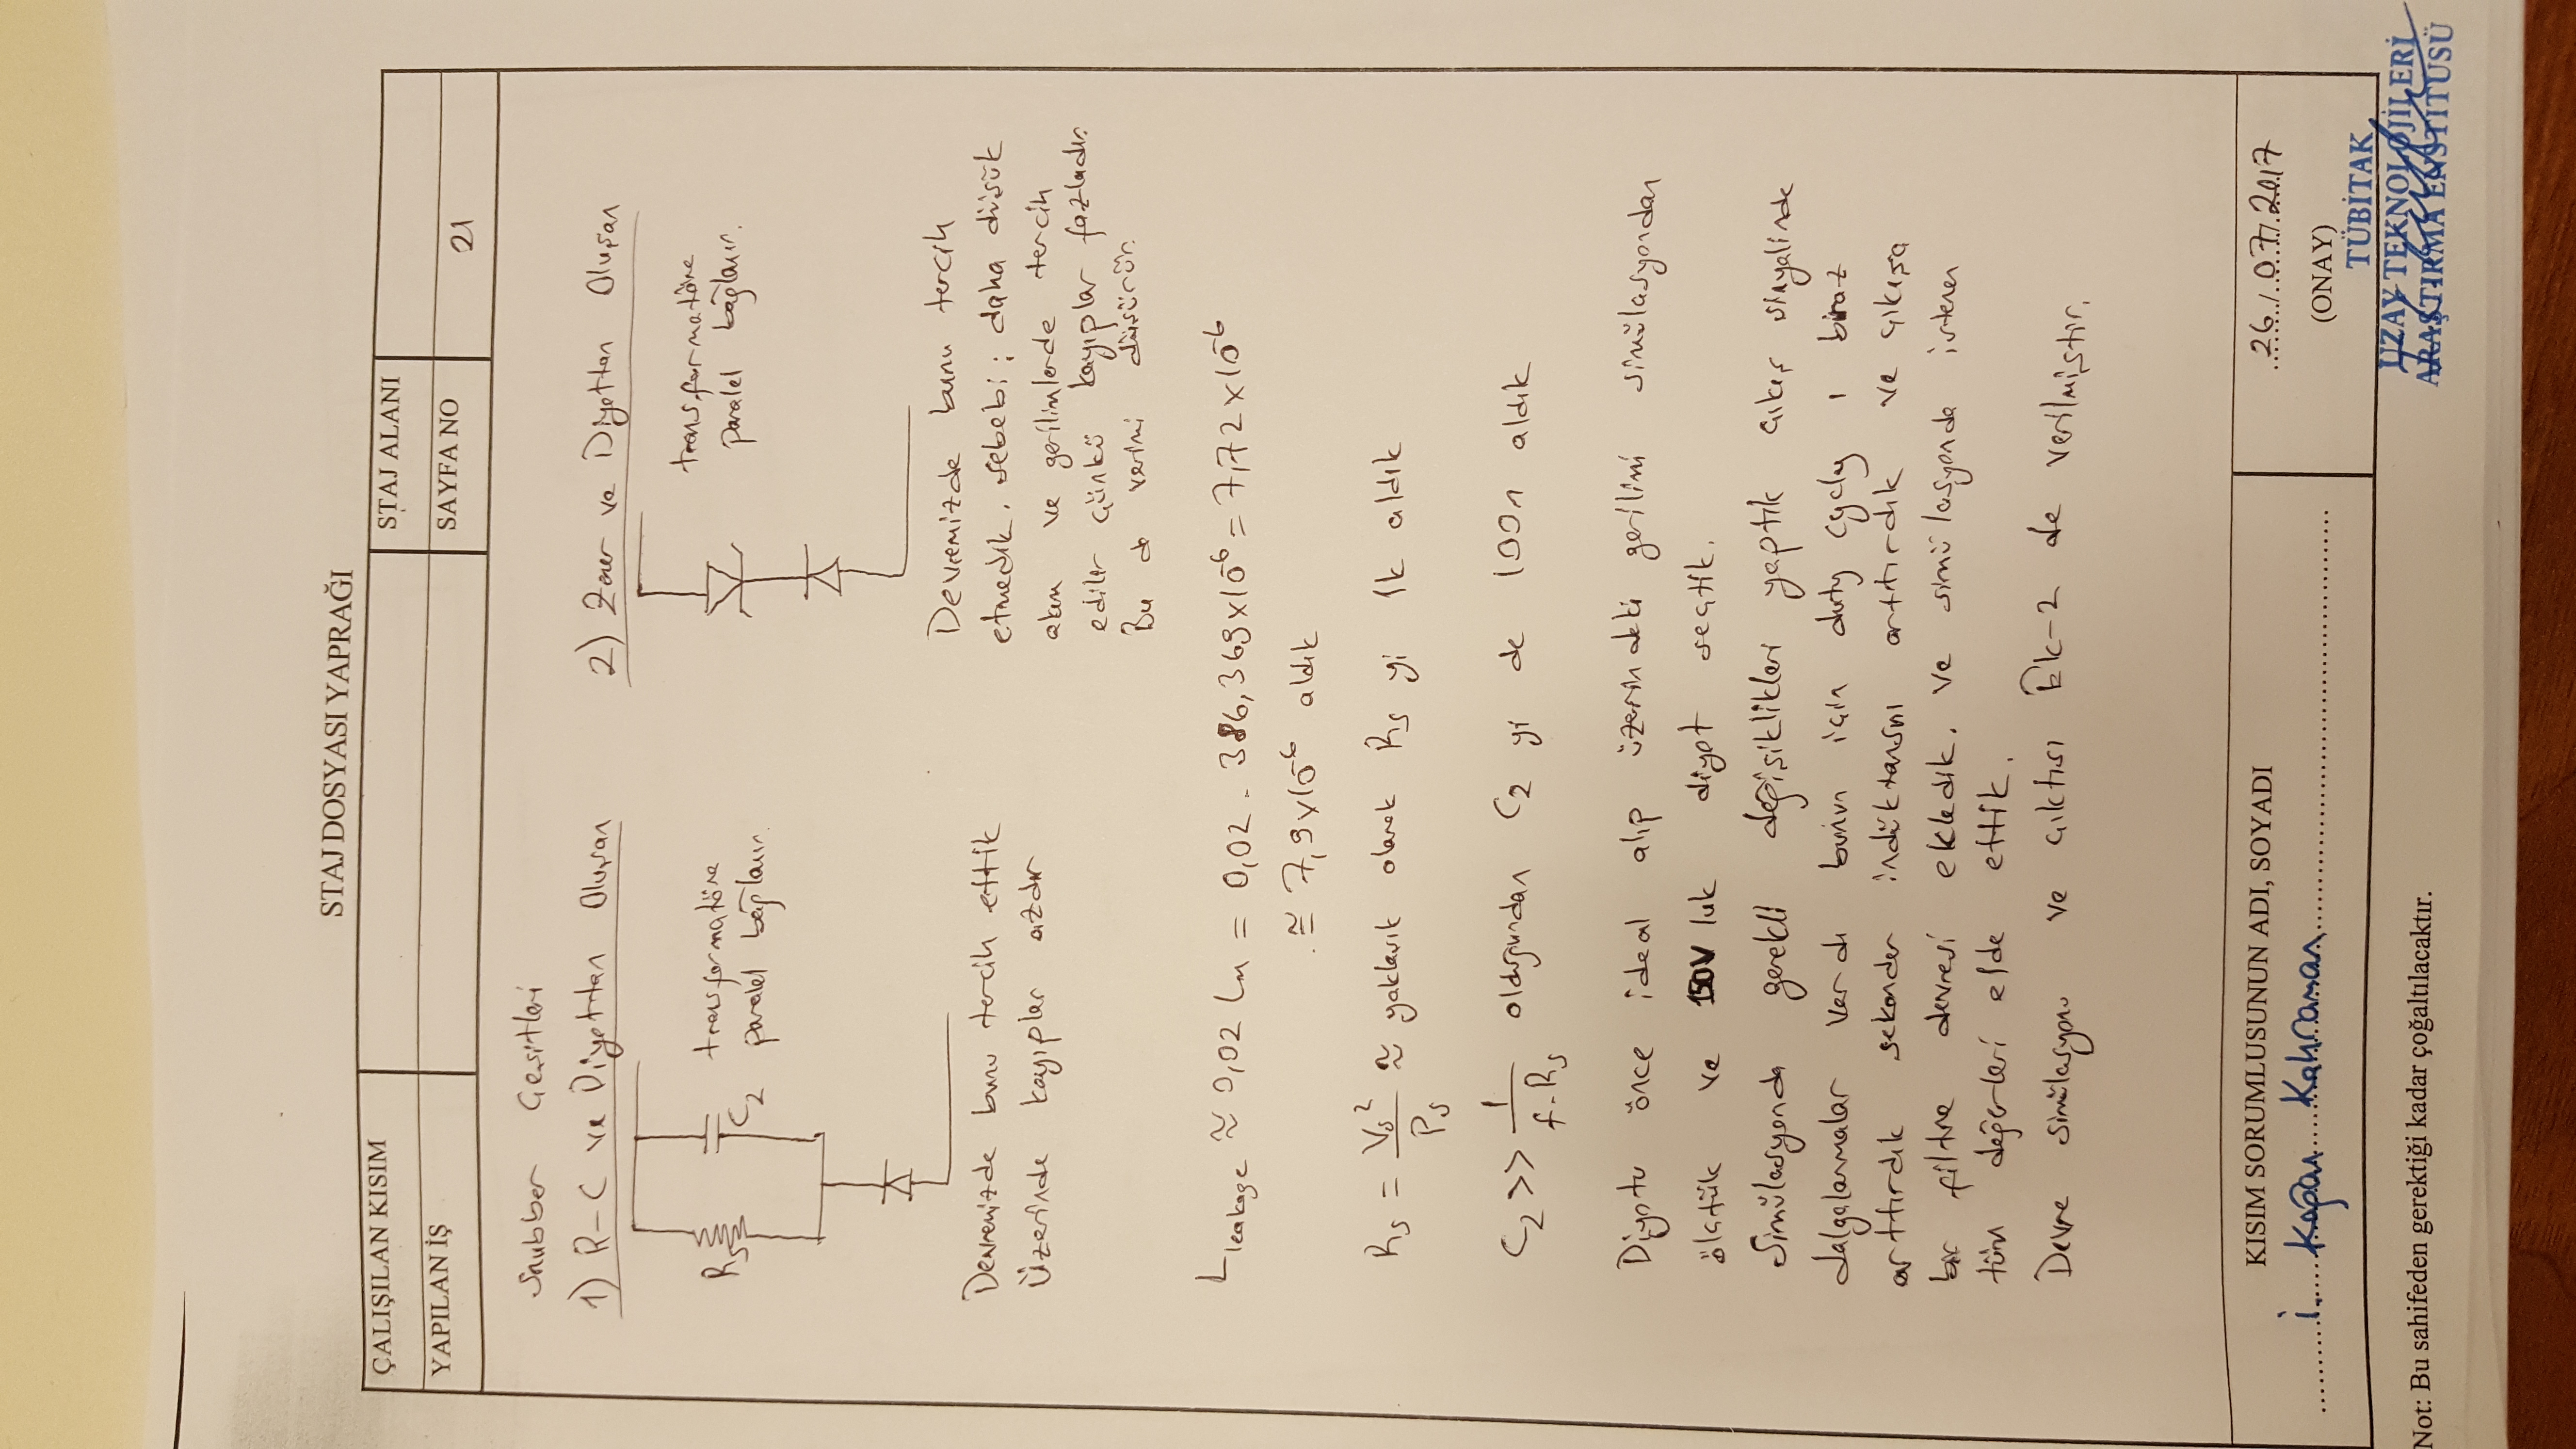 STAJ DOSYASI YAPRAĞI
ÇALIŞILAN KISIM
STAJ ALANI
YAPILAN İŞ
SAYFA NO
21
Snubber Çeşitleri
1) R-C ve Diyottan Oluşan
2) Zener ve Diyottan Oluşan
Rs
C2
transformatöre
paralel bağlanır.
transformatöre
paralel bağlanır.
Devremizde bunu tercih ettik
Üzerinde kayıplar azdır
Devremizde bunu tercih
etmedik. sebebi; daha düşük
akım ve gerilimlerde tercih
edilir çünkü kayıplar fazladır.
Bu da verimi düşürür.
Lleakage ≈ 0,02 Lm = 0,02 . 386,369x10^-6 = 7,72x10^-6
≅ 7,9x10^-6 aldık
Rs = Vs²/Ps ≈ yaklaşık olarak Rs yi 1k aldık
C2 >> 1/f.Rs olduğundan C2 yi de 100n aldık
Diyotu önce ideal alıp üzerindeki gerilimi simülasyondan
ölçtük ve 150V luk diyot seçtik.
Simülasyonda gerekli değişiklikleri yaptık çıkış sinyalinde
dalgalanmalar vardı bunun için duty cycly ı biraz
arttırdık sekonder indüktansını arttırdık ve çıkışa
bir filtre devresi ekledik. ve simülasyonda istenen
tüm değerleri elde ettik.
Devre simülasyonu ve çıktısı Ek-2 de verilmiştir.
KISIM SORUMLUSUNUN ADI, SOYADI
i. Kağan Kahraman
26/07/2017
(ONAY)
TÜBİTAK
UZAY TEKNOLOJİLERİ
ARAŞTIRMA ENSTİTÜSÜ
Not: Bu sahifeden gerektiği kadar çoğaltılacaktır.